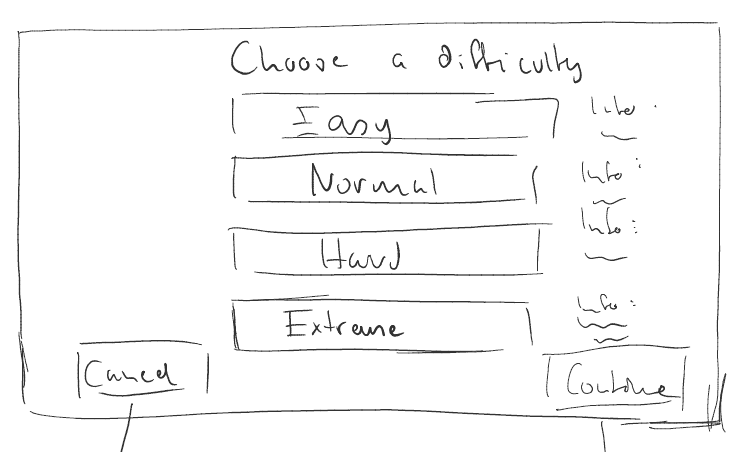 Choose a difficulty
Easy
Info:
Normal
Info:
Hard
Info:
Extreme
Info:
Cancel
Continue